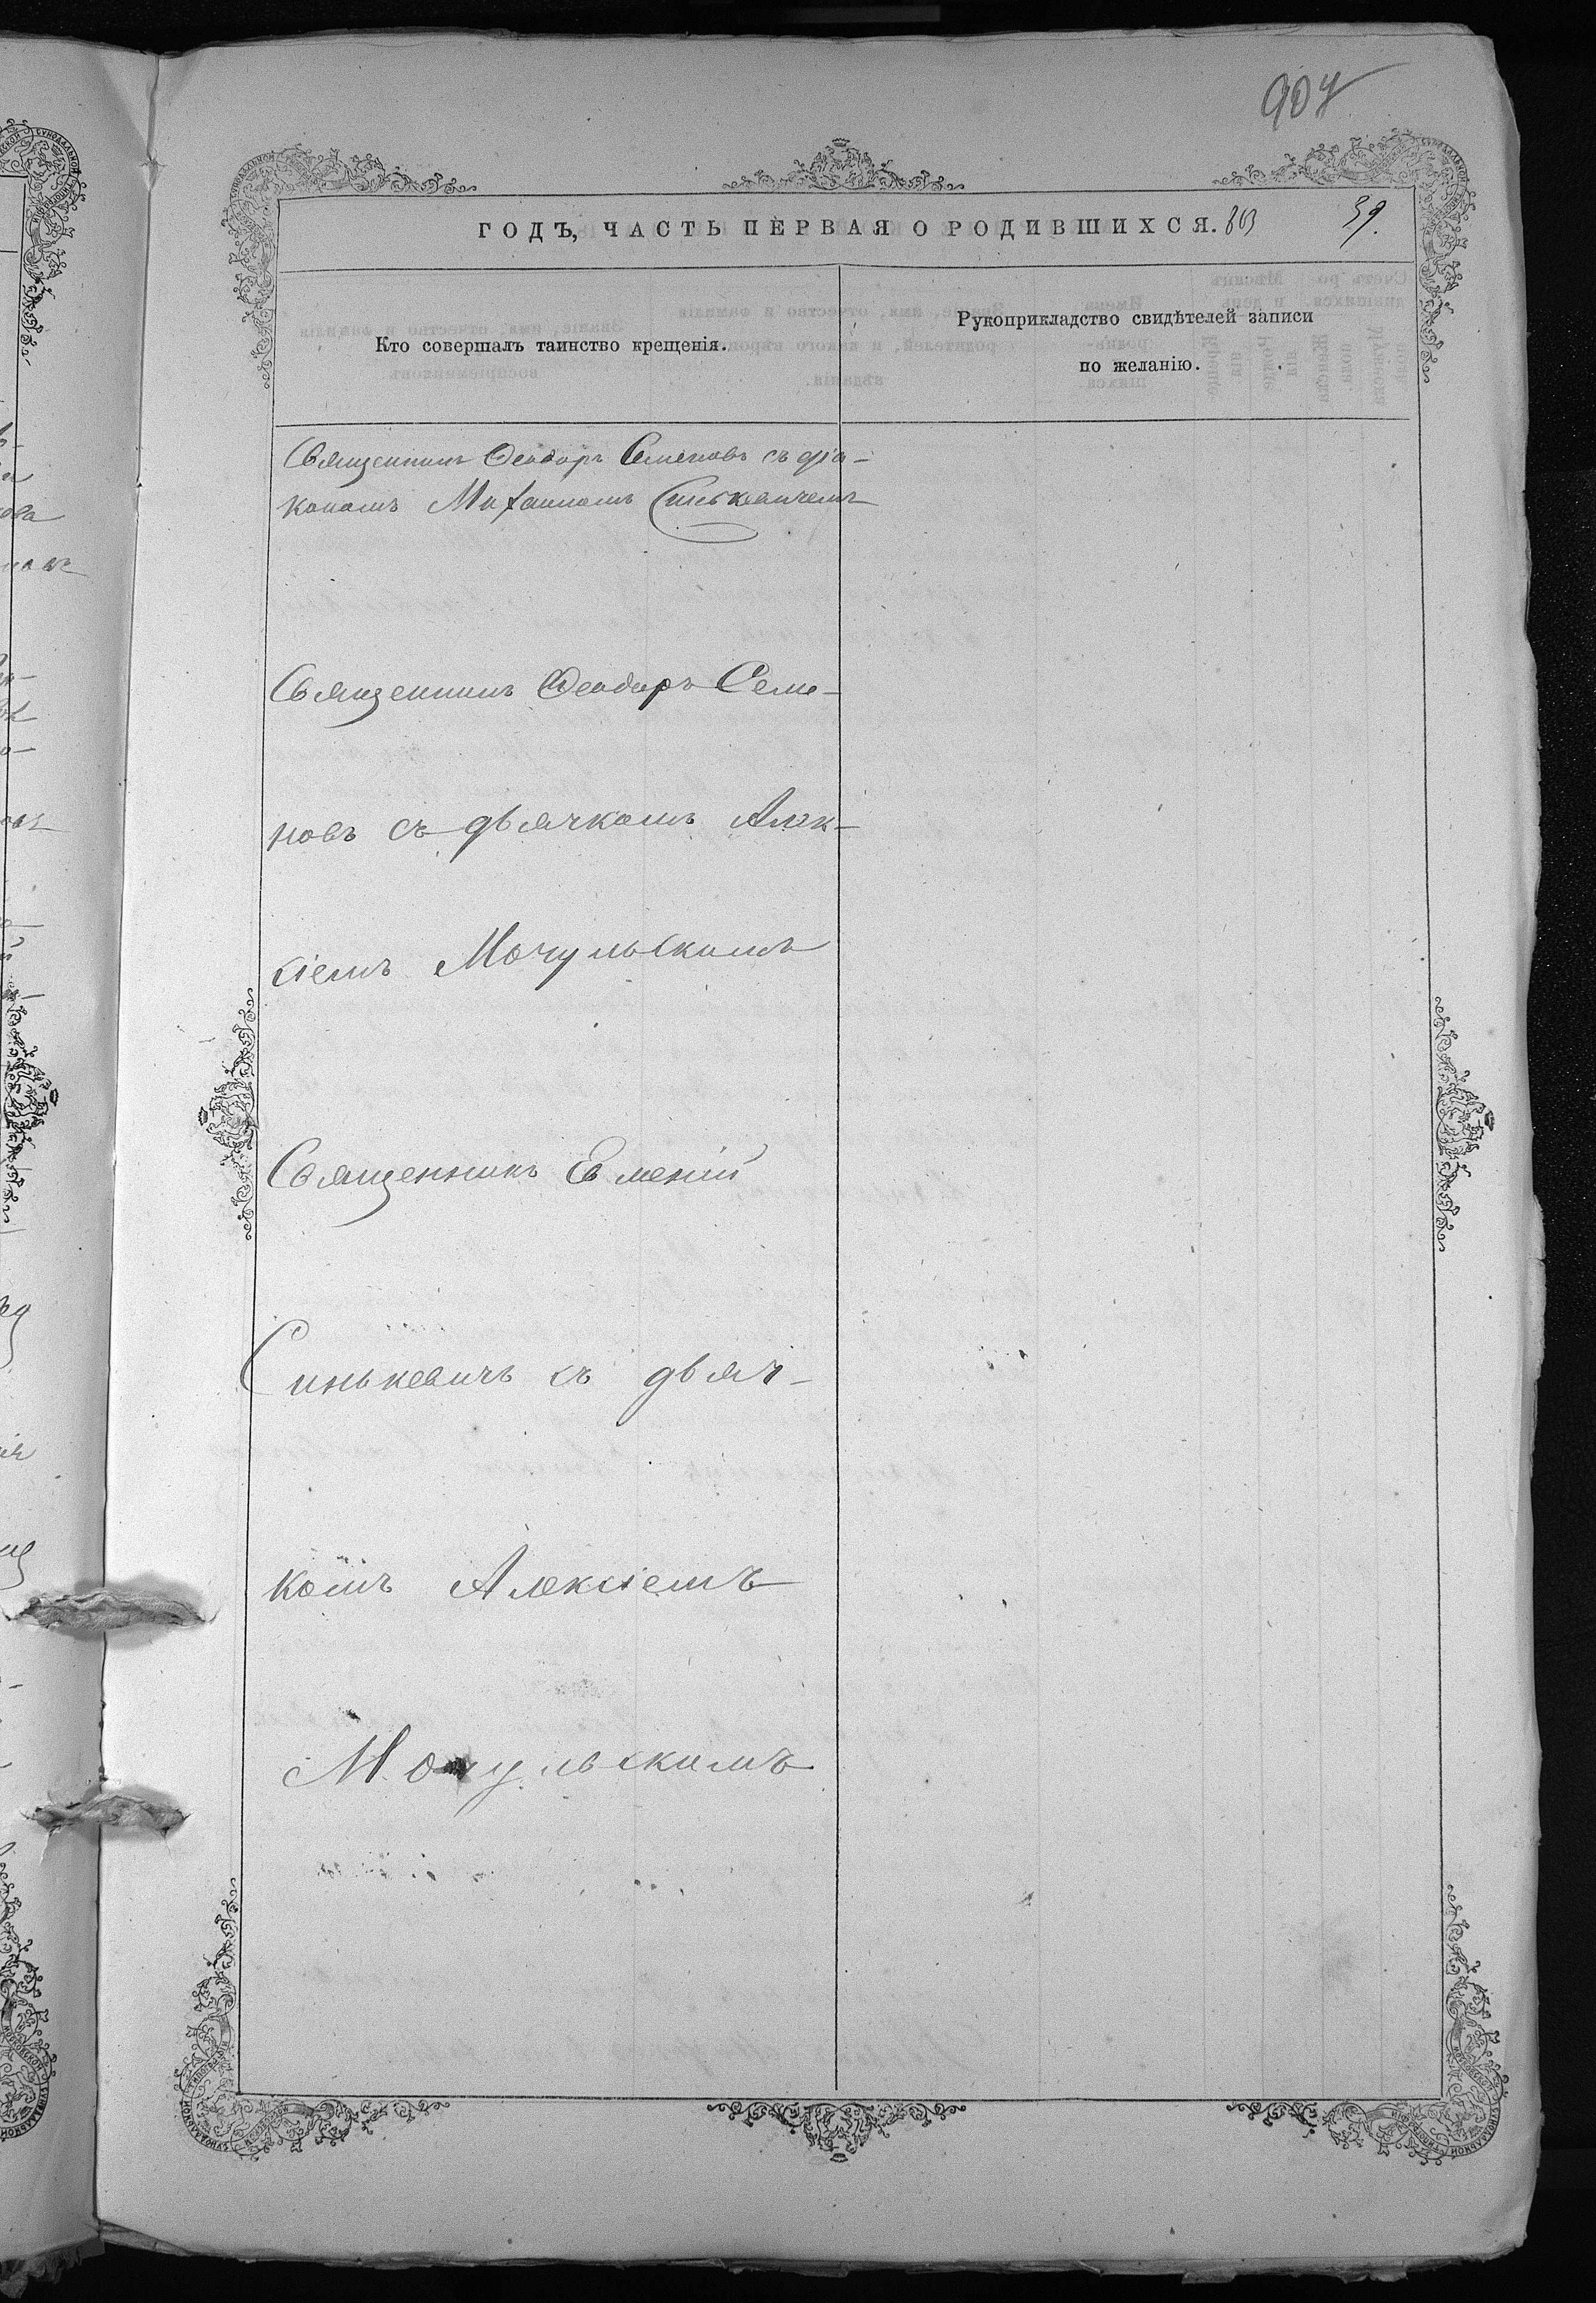 907
ГОДЪ, ЧАСТЬ ПЕРВАЯ О РОДИВШИХСЯ. 803 39.
Кто совершалъ таинство крещенія.
Рукоприкладство свидѣтелей записи
по желанію.
Священникъ Ѳеодоръ Семеновъ съ діа-
кономъ Михаиломъ Синькевичемъ
Священникъ Ѳеодоръ Семе-
новъ съ дьячкомъ Алек-
сіемъ Мочульскимъ
Священникъ Евменій
Синькевичъ съ дьяч-
комъ Алексіемъ
Мочульскимъ